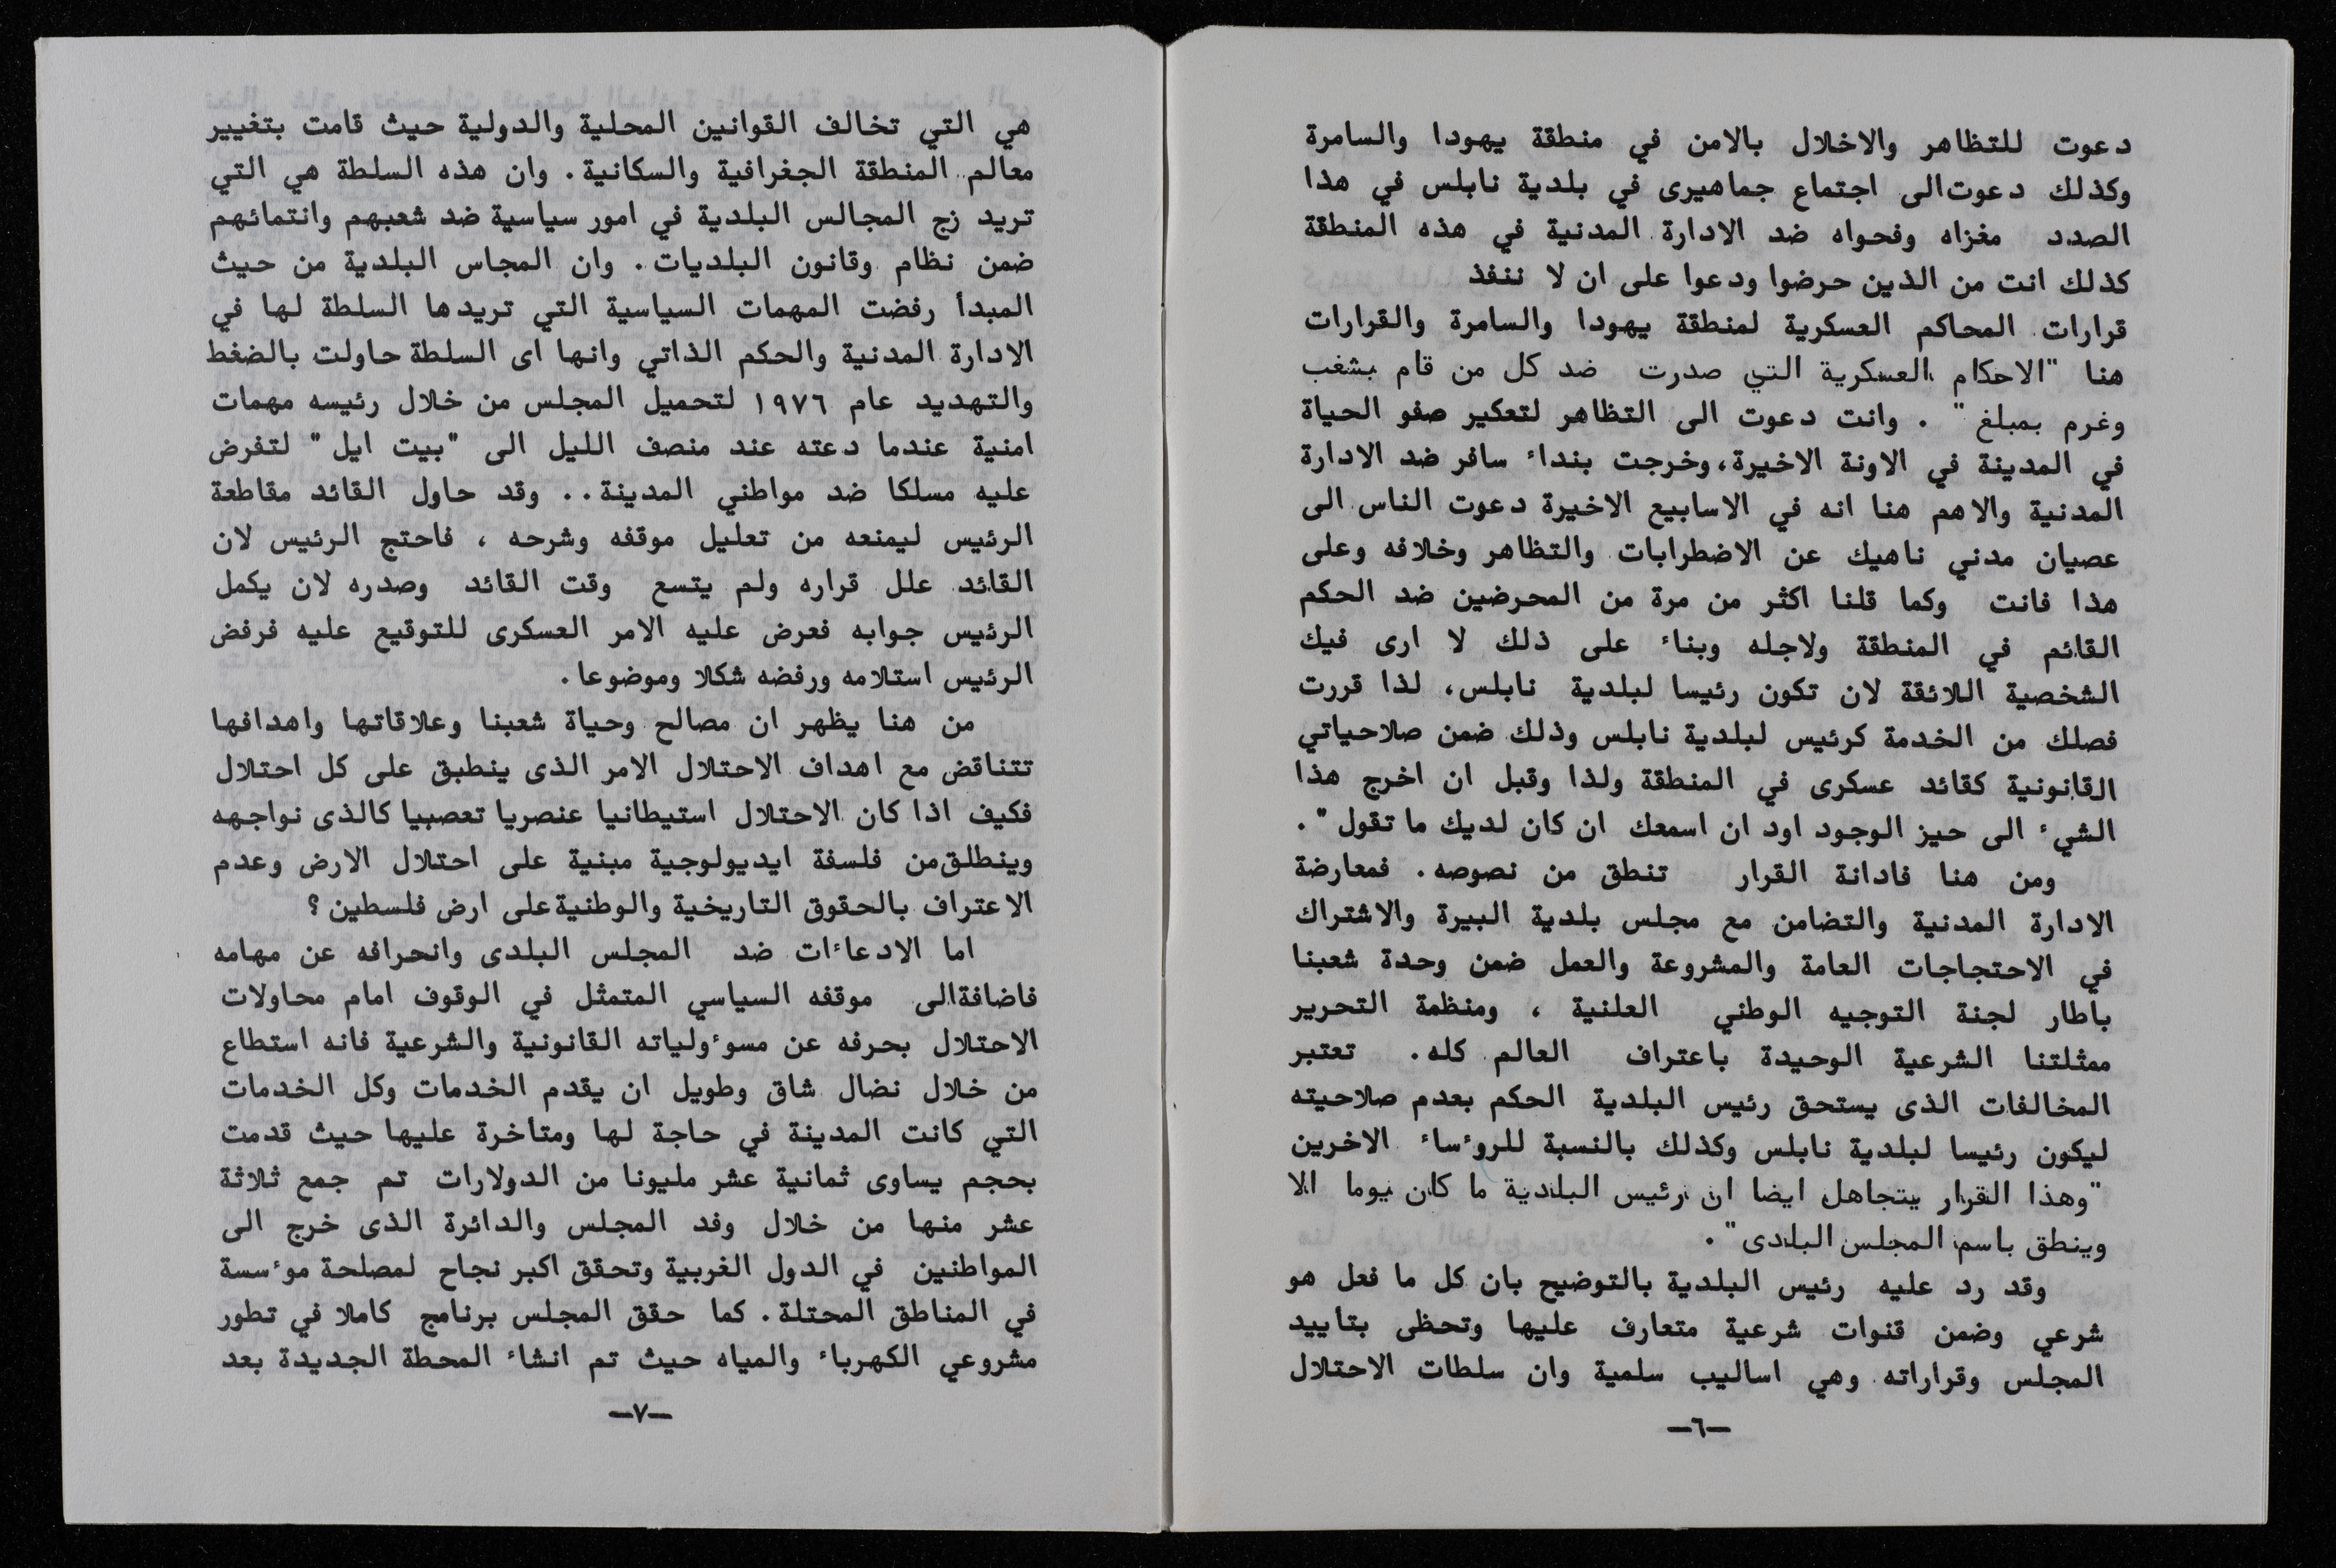 دعوت للتظاهر والاخلال بالامن في منطقة يهودا والسامرة
وكذلك دعوت الى اجتماع جماهيرى في بلدية نابلس في هذا
الصدد مغزاه وفحواه ضد الادارة المدنية في هذه المنطقة
كذلك انت من الذين حرضوا ودعوا على ان لا ننفذ
قرارات المحاكم العسكرية لمنطقة يهودا والسامرة والقرارات
هنا "الاحكام العسكرية التي صدرت ضد كل من قام بشغب
وغرم بمبلغ" . وانت دعوت الى التظاهر لتعكير صفو الحياة
في المدينة في الاونة الاخيرة، وخرجت بنداء سافر ضد الادارة
المدنية والاهم هنا انه في الاسابيع الاخيرة دعوت الناس الى
عصيان مدني ناهيك عن الاضطرابات والتظاهر وخلافه وعلى
هذا فانت وكما قلنا اكثر من مرة من المحرضين ضد الحكم
القائم في المنطقة ولاجله وبناء على ذلك لا ارى فيك
الشخصية اللائقة لان تكون رئيسا لبلدية نابلس، لذا قررت
فصلك من الخدمة كرئيس لبلدية نابلس وذلك ضمن صلاحياتي
القانونية كقائد عسكرى في المنطقة ولذا وقبل ان اخرج هذا
الشيء الى حيز الوجود اود ان اسمعك ان كان لديك ما تقول" .
ومن هنا فادانة القرار تنطق من نصوصه. فمعارضة
الادارة المدنية والتضامن مع مجلس بلدية البيرة والاشتراك
في الاحتجاجات العامة والمشروعة والعمل ضمن وحدة شعبنا
باطار لجنة التوجيه الوطني العلنية ، ومنظمة التحرير
ممثلتنا الشرعية الوحيدة باعتراف العالم كله. تعتبر
المخالفات الذى يستحق رئيس البلدية الحكم بعدم صلاحيته
ليكون رئيسا لبلدية نابلس وكذلك بالنسبة للروٴساء الاخرين
"وهذا القرار يتجاهل ايضا ان رئيس البلدية ما كان يوما الا
وينطق باسم المجلس البلدى" .
وقد رد عليه رئيس البلدية بالتوضيح بان كل ما فعل هو
شرعي وضمن قنوات شرعية متعارف عليها وتحظى بتأييد
المجلس وقراراته وهي اساليب سلمية وان سلطات الاحتلال
—٦—
هي التي تخالف القوانين المحلية والدولية حيث قامت بتغيير
معالم المنطقة الجغرافية والسكانية. وان هذه السلطة هي التي
تريد زج المجالس البلدية في امور سياسية ضد شعبهم وانتمائهم
ضمن نظام وقانون البلديات. وان المجاس البلدية من حيث
المبدأ رفضت المهمات السياسية التي تريدها السلطة لها في
الادارة المدنية والحكم الذاتي وانها اى السلطة حاولت بالضغط
والتهديد عام ١٩٧٦ لتحميل المجلس من خلال رئيسه مهمات
امنية عندما دعته عند منصف الليل الى "بيت ايل" لتفرض
عليه مسلكا ضد مواطني المدينة.. وقد حاول القائد مقاطعة
الرئيس ليمنعه من تعليل موقفه وشرحه ، فاحتج الرئيس لان
القائد علل قراره ولم يتسع وقت القائد وصدره لان يكمل
الرئيس جوابه فعرض عليه الامر العسكرى للتوقيع عليه فرفض
الرئيس استلامه ورفضه شكلا وموضوعا.
من هنا يظهر ان مصالح وحياة شعبنا وعلاقاتها واهدافها
تتناقض مع اهداف الاحتلال الامر الذى ينطبق على كل احتلال
فكيف اذا كان الاحتلال استيطانيا عنصريا تعصبيا كالذى نواجهه
وينطلق من فلسفة ايديولوجية مبنية على احتلال الارض وعدم
الاعتراف بالحقوق التاريخية والوطنية على ارض فلسطين ؟
اما الادعاءات ضد المجلس البلدى وانحرافه عن مهامه
فاضافة الى موقفه السياسي المتمثل في الوقوف امام محاولات
الاحتلال بحرفه عن مسوٴولياته القانونية والشرعية فانه استطاع
من خلال نضال شاق وطويل ان يقدم الخدمات وكل الخدمات
التي كانت المدينة في حاجة لها ومتأخرة عليها حيث قدمت
بحجم يساوى ثمانية عشر مليونا من الدولارات تم جمع ثلاثة
عشر منها من خلال وفد المجلس والدائرة الذى خرج الى
المواطنين في الدول الغربية وتحقق اكبر نجاح لمصلحة موٴسسة
في المناطق المحتلة. كما حقق المجلس برنامج كاملا في تطور
مشروعي الكهرباء والمياه حيث تم انشاء المحطة الجديدة بعد
—٧—